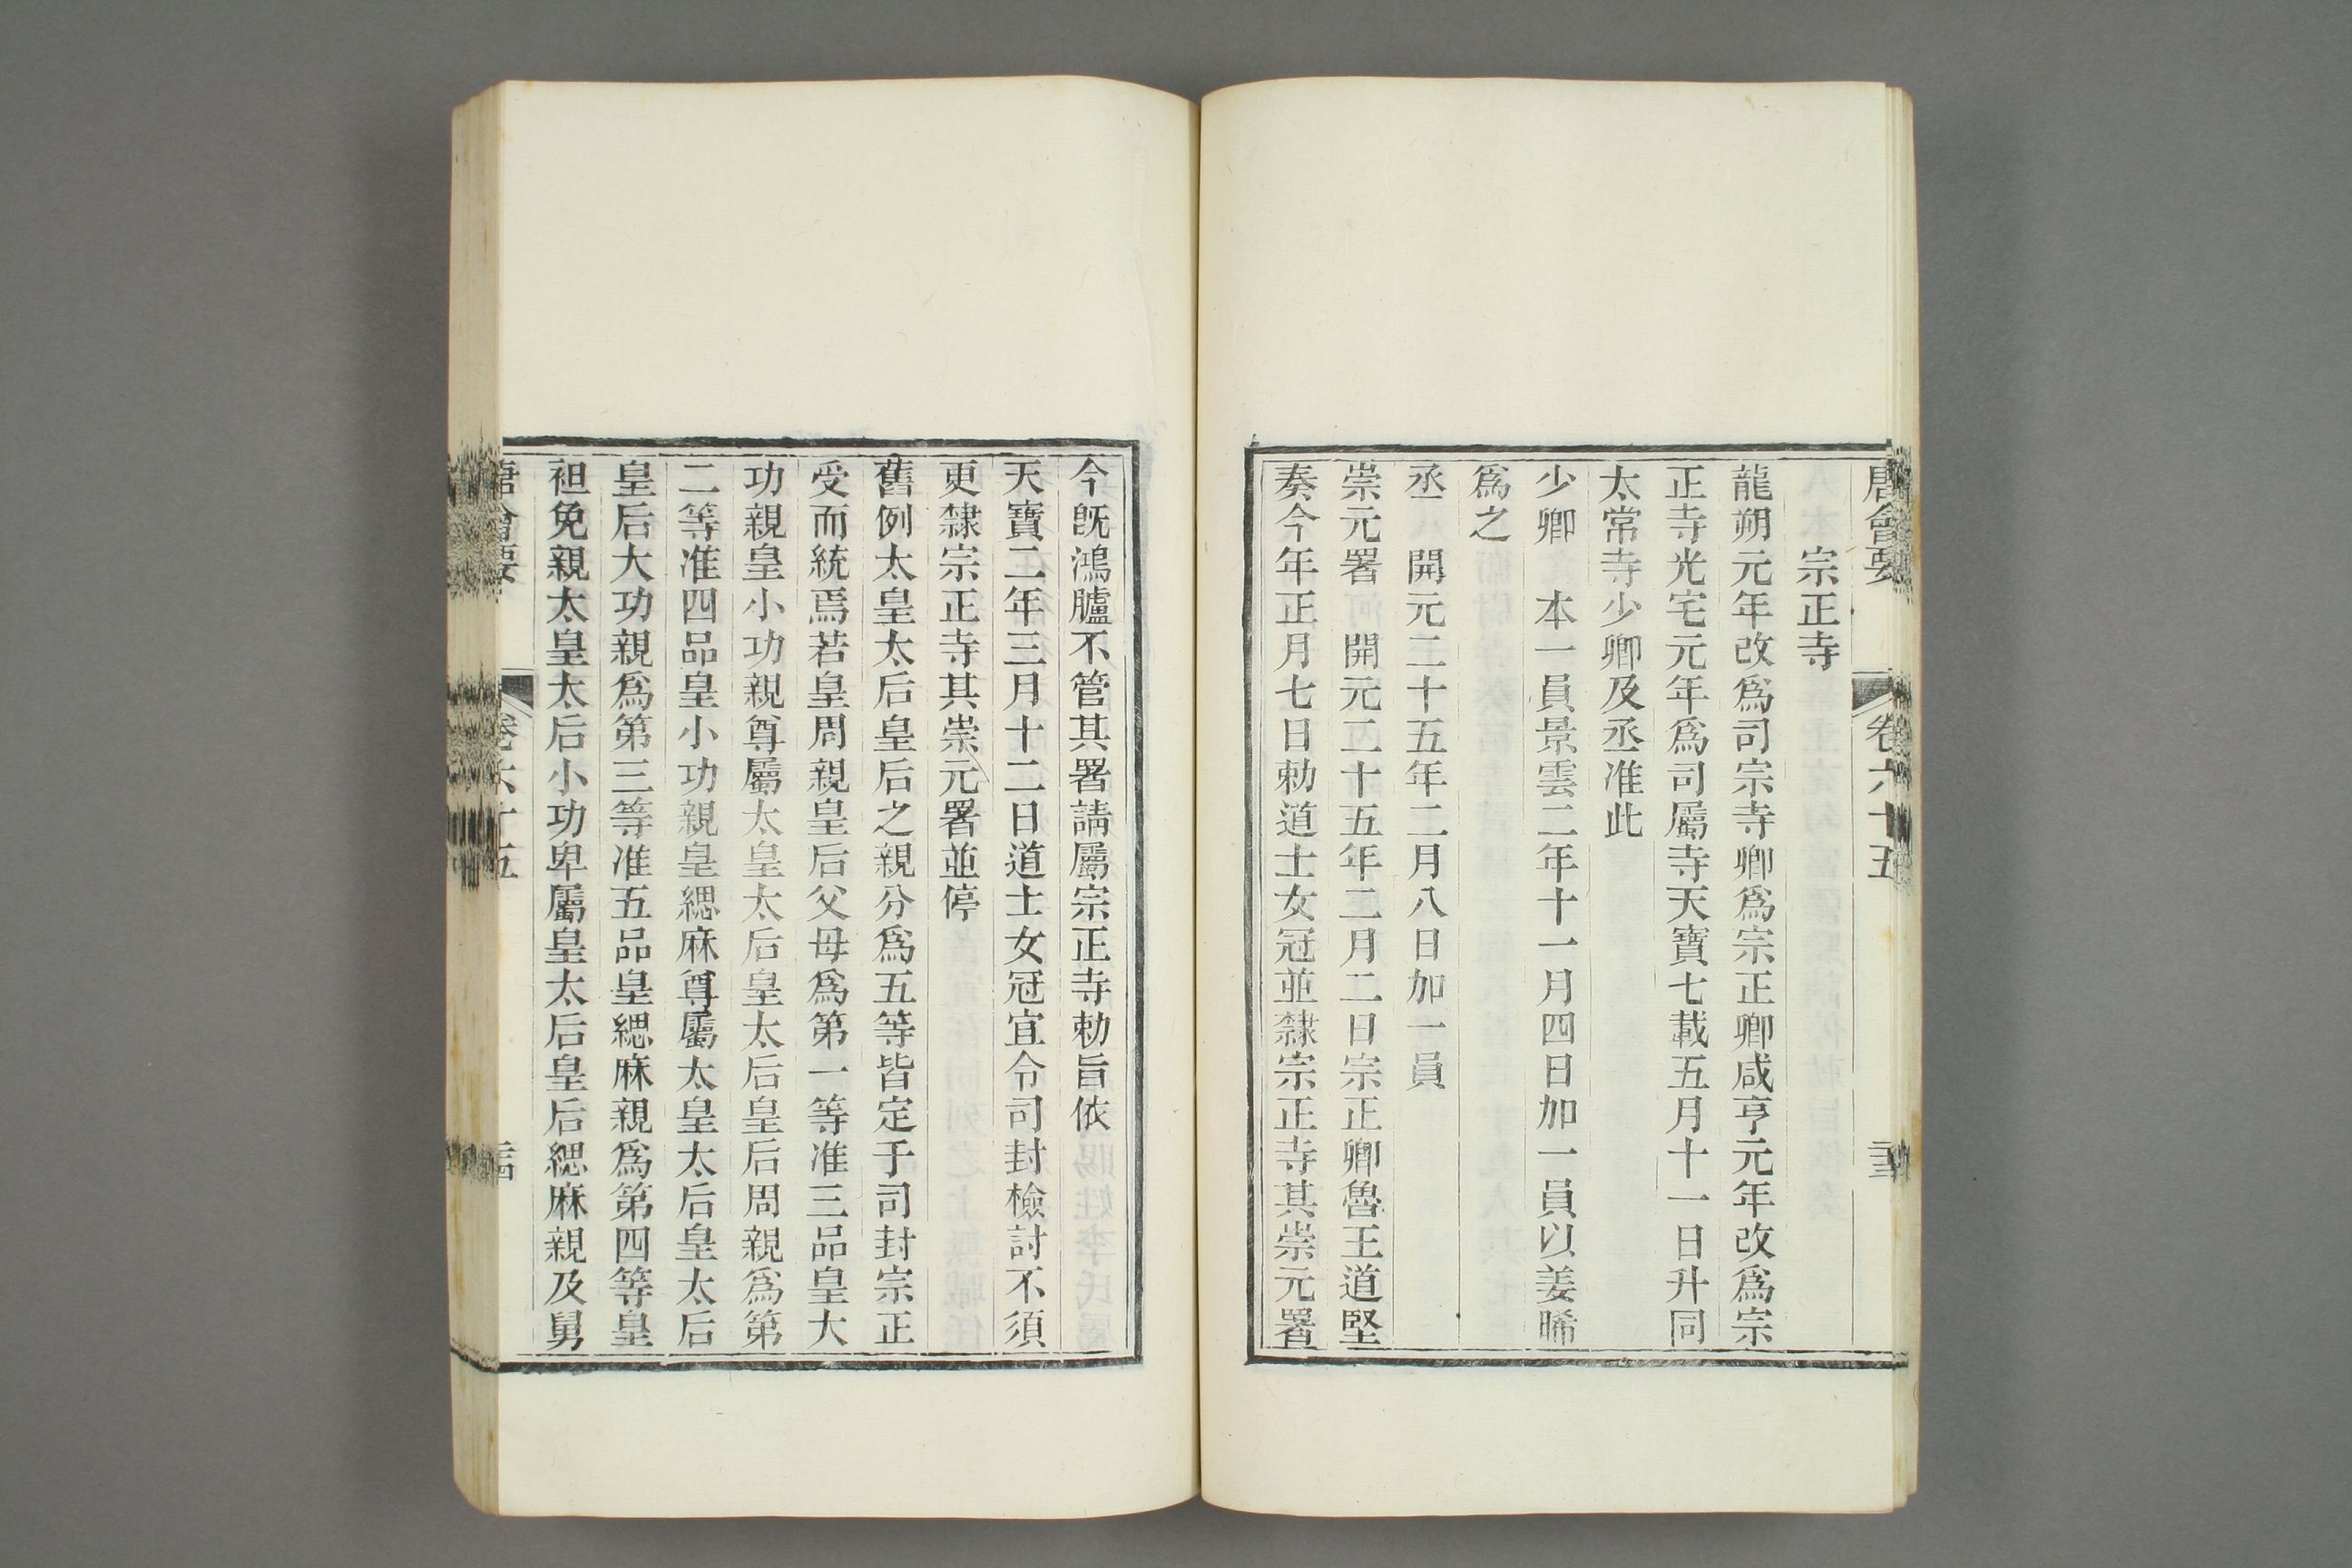 唐會要 卷六十五
宗正寺
龍朔元年改爲司宗寺卿爲宗正卿咸亨元年改爲宗
正寺光宅元年爲司屬寺天寶七載五月十一日升同
太常寺少卿及丞准此
少卿 本一員景雲二年十一月四日加一員以姜晞
爲之
丞 開元二十五年二月八日加一員
崇元署 開元二十五年二月二日宗正卿魯王道堅
奏今年正月七日勅道士女冠並隸宗正寺其崇元署
今旣鴻臚不管其署請屬宗正寺勅旨依
天寶二年三月十二日道士女冠宜令司封檢討不須
更隸宗正寺其崇元署並停
舊例太皇太后皇后之親分爲五等皆定于司封宗正
受而統焉若皇周親皇后父母爲第一等准三品皇大
功親皇小功親尊屬太皇太后皇太后皇后周親爲第
二等准四品皇小功親皇緦麻尊屬太皇太后皇太后
皇后大功親爲第三等准五品皇緦麻親爲第四等皇
袒免親太皇太后小功卑屬皇太后皇后緦麻親及舅
唐會要 卷六十五